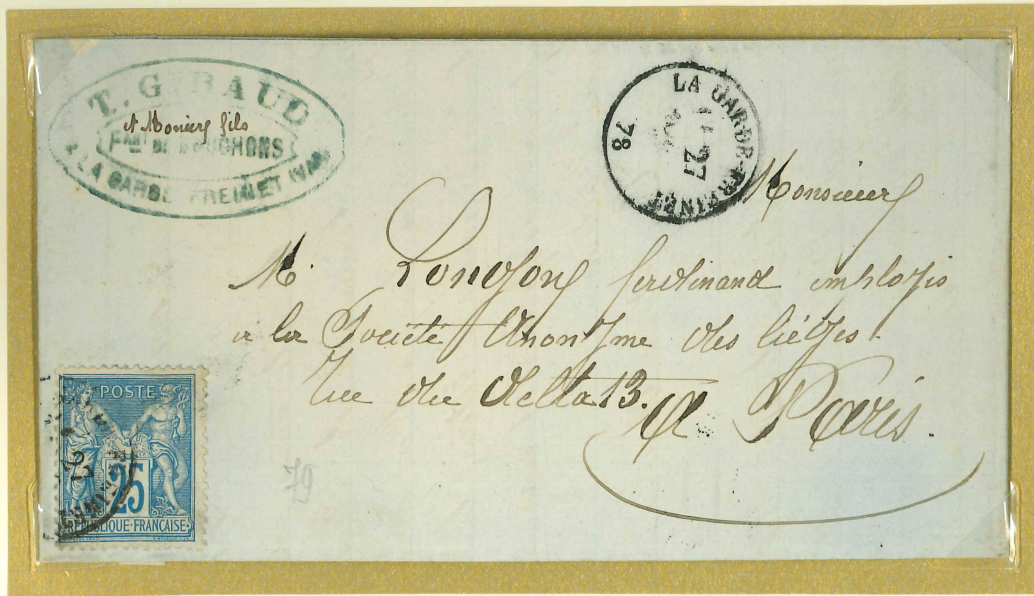 T. GIRAUD
et Moniers fils
FNT DE BOUCHONS
A LA GARDE FREINET (VAR)
LA GARDE-FREINET
27
78
Monsieur
M. Longfony ferdinand employé
a la Société Anonyme des liéges.
rue du Delta 13.
A Paris.
POSTE
25
REPUBLIQUE·FRANÇAISE
79